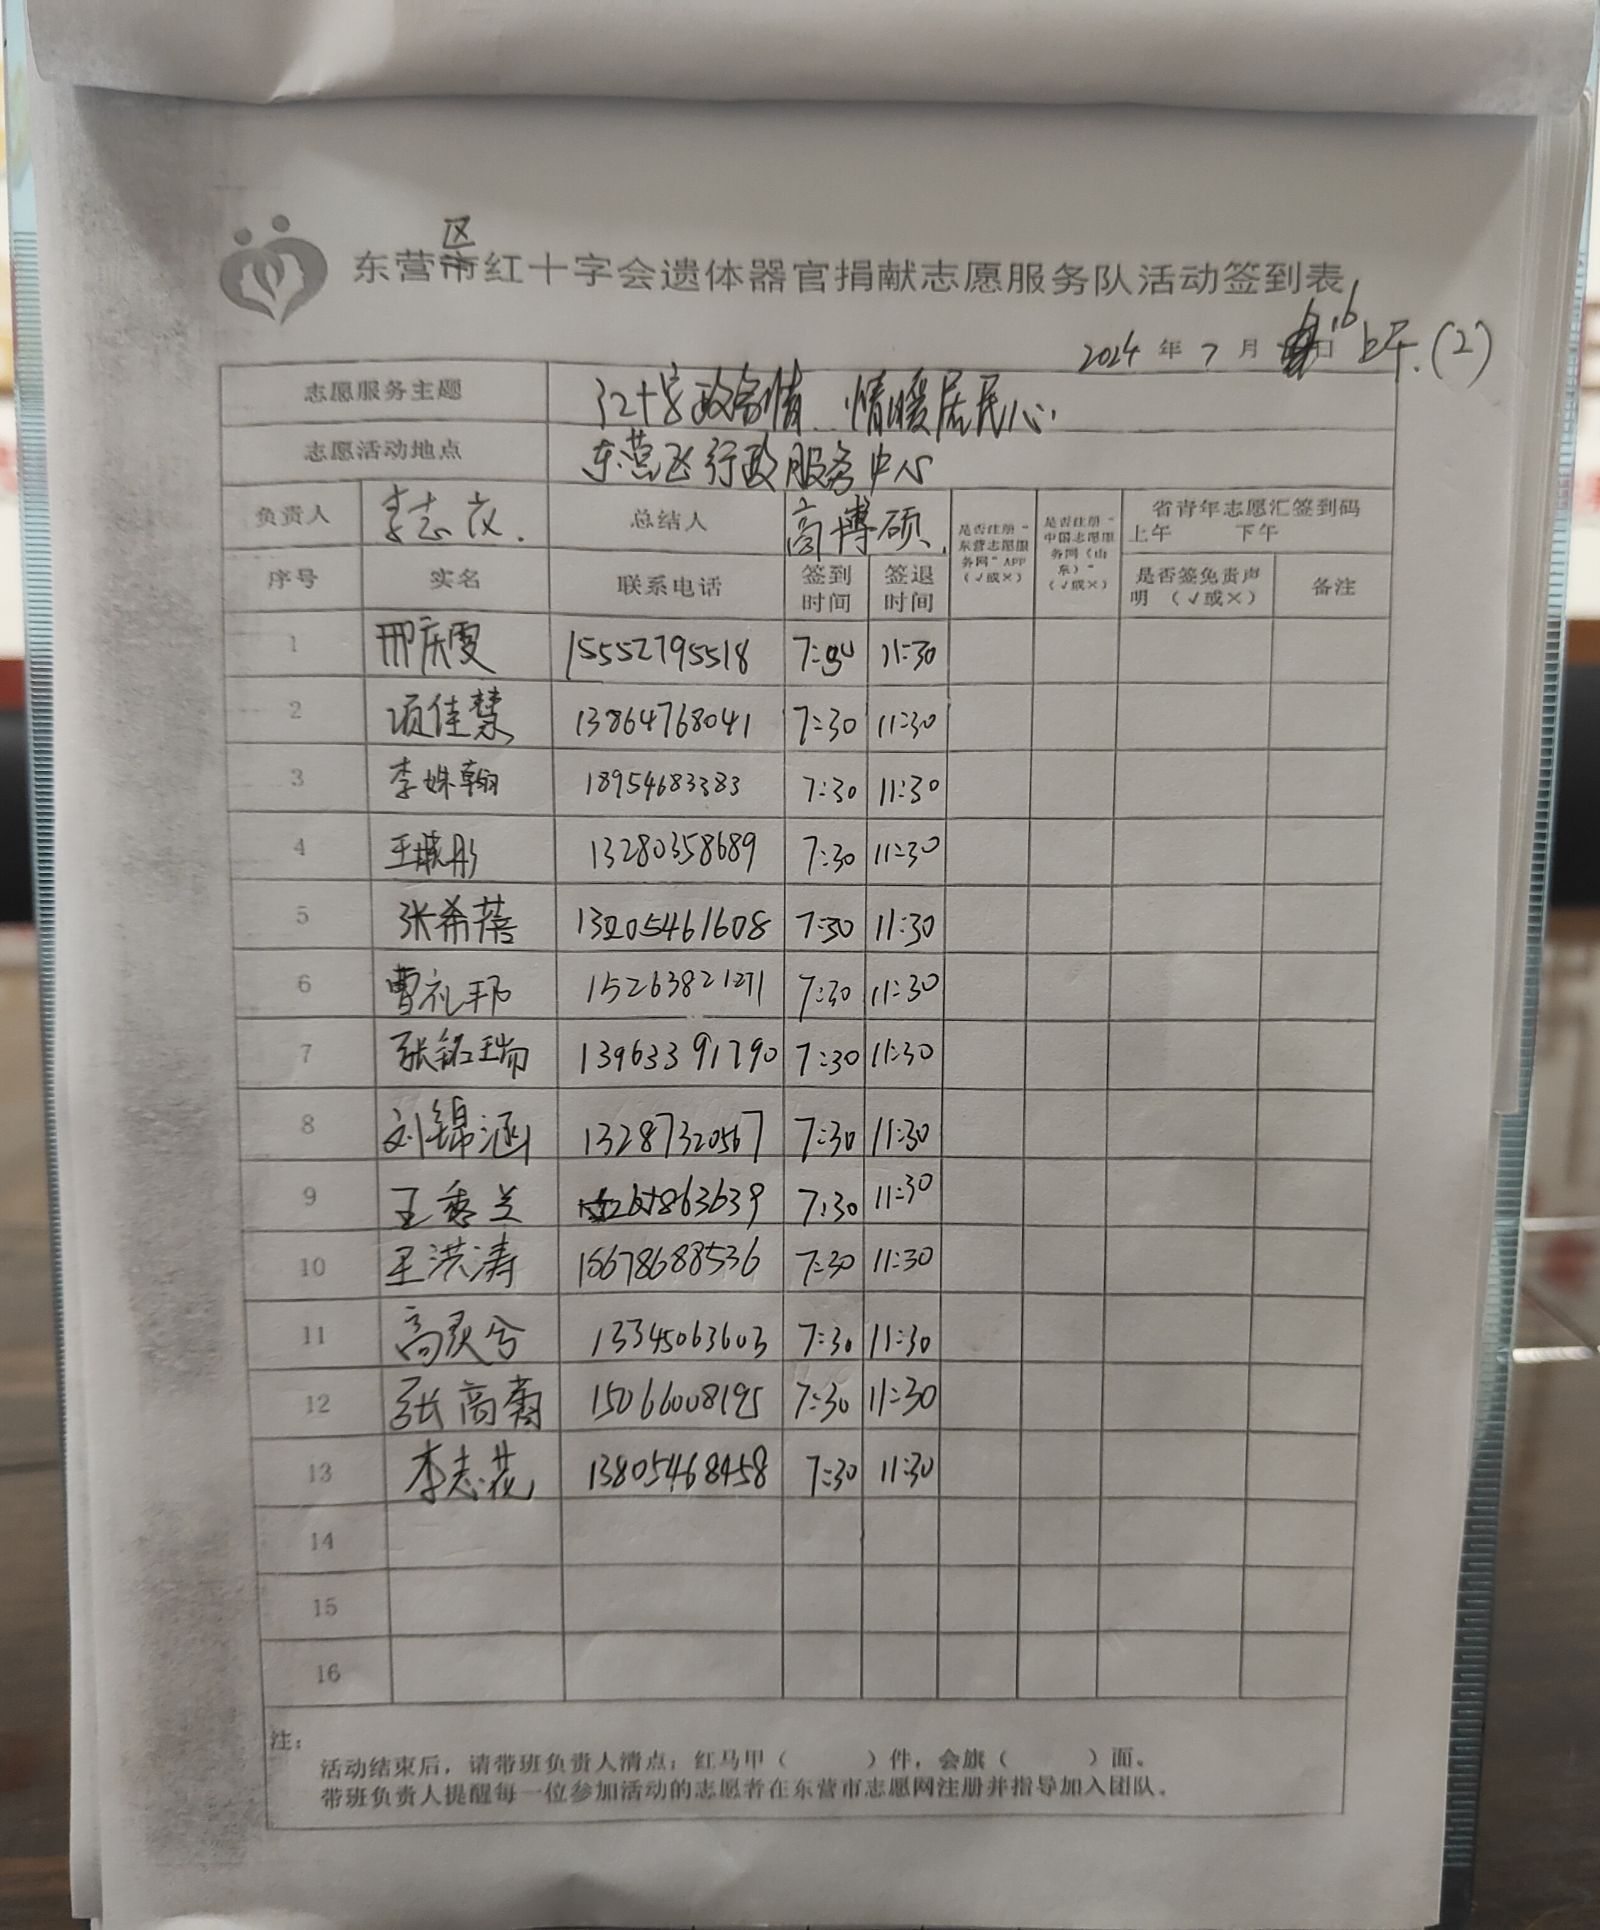 区
东营市红十字会遗体器官捐献志愿服务队活动签到表
2024 年 7 月 16 日 上午.(2)
志愿服务主题 红十字政务情 情暖居民心.
志愿活动地点 东营区行政服务中心
负责人 李志花. 总结人 高博硕. 是否注册“东营志愿服务网”APP(√或×) 是否注册“中国志愿服务网(山东)”(√或×) 省青年志愿汇签到码 上午 下午
序号 实名 联系电话 签到时间 签退时间 是否签免责声明 (√或×) 备注
1 邢庆雯 15552795518 7:30 11:30
2 项佳慧 13864768041 7:30 11:30
3 李姝翰 18954683383 7:30 11:30
4 王毓彤 13280358689 7:30 11:30
5 张希蓓 13205461608 7:30 11:30
6 曹礼邦 15263821271 7:30 11:30
7 张铭瑞 13963391790 7:30 11:30
8 刘锦涵 13287320567 7:30 11:30
9 王秀兰 7:30 11:30
10 王洪涛 15678688536 7:30 11:30
11 高灵兮 13345063603 7:30 11:30
12 张高菊 15066008195 7:30 11:30
13 李志花 13805468458 7:30 11:30
14
15
16
注:
活动结束后,请带班负责人清点:红马甲( )件,会旗( )面。
带班负责人提醒每一位参加活动的志愿者在东营市志愿网注册并指导加入团队。